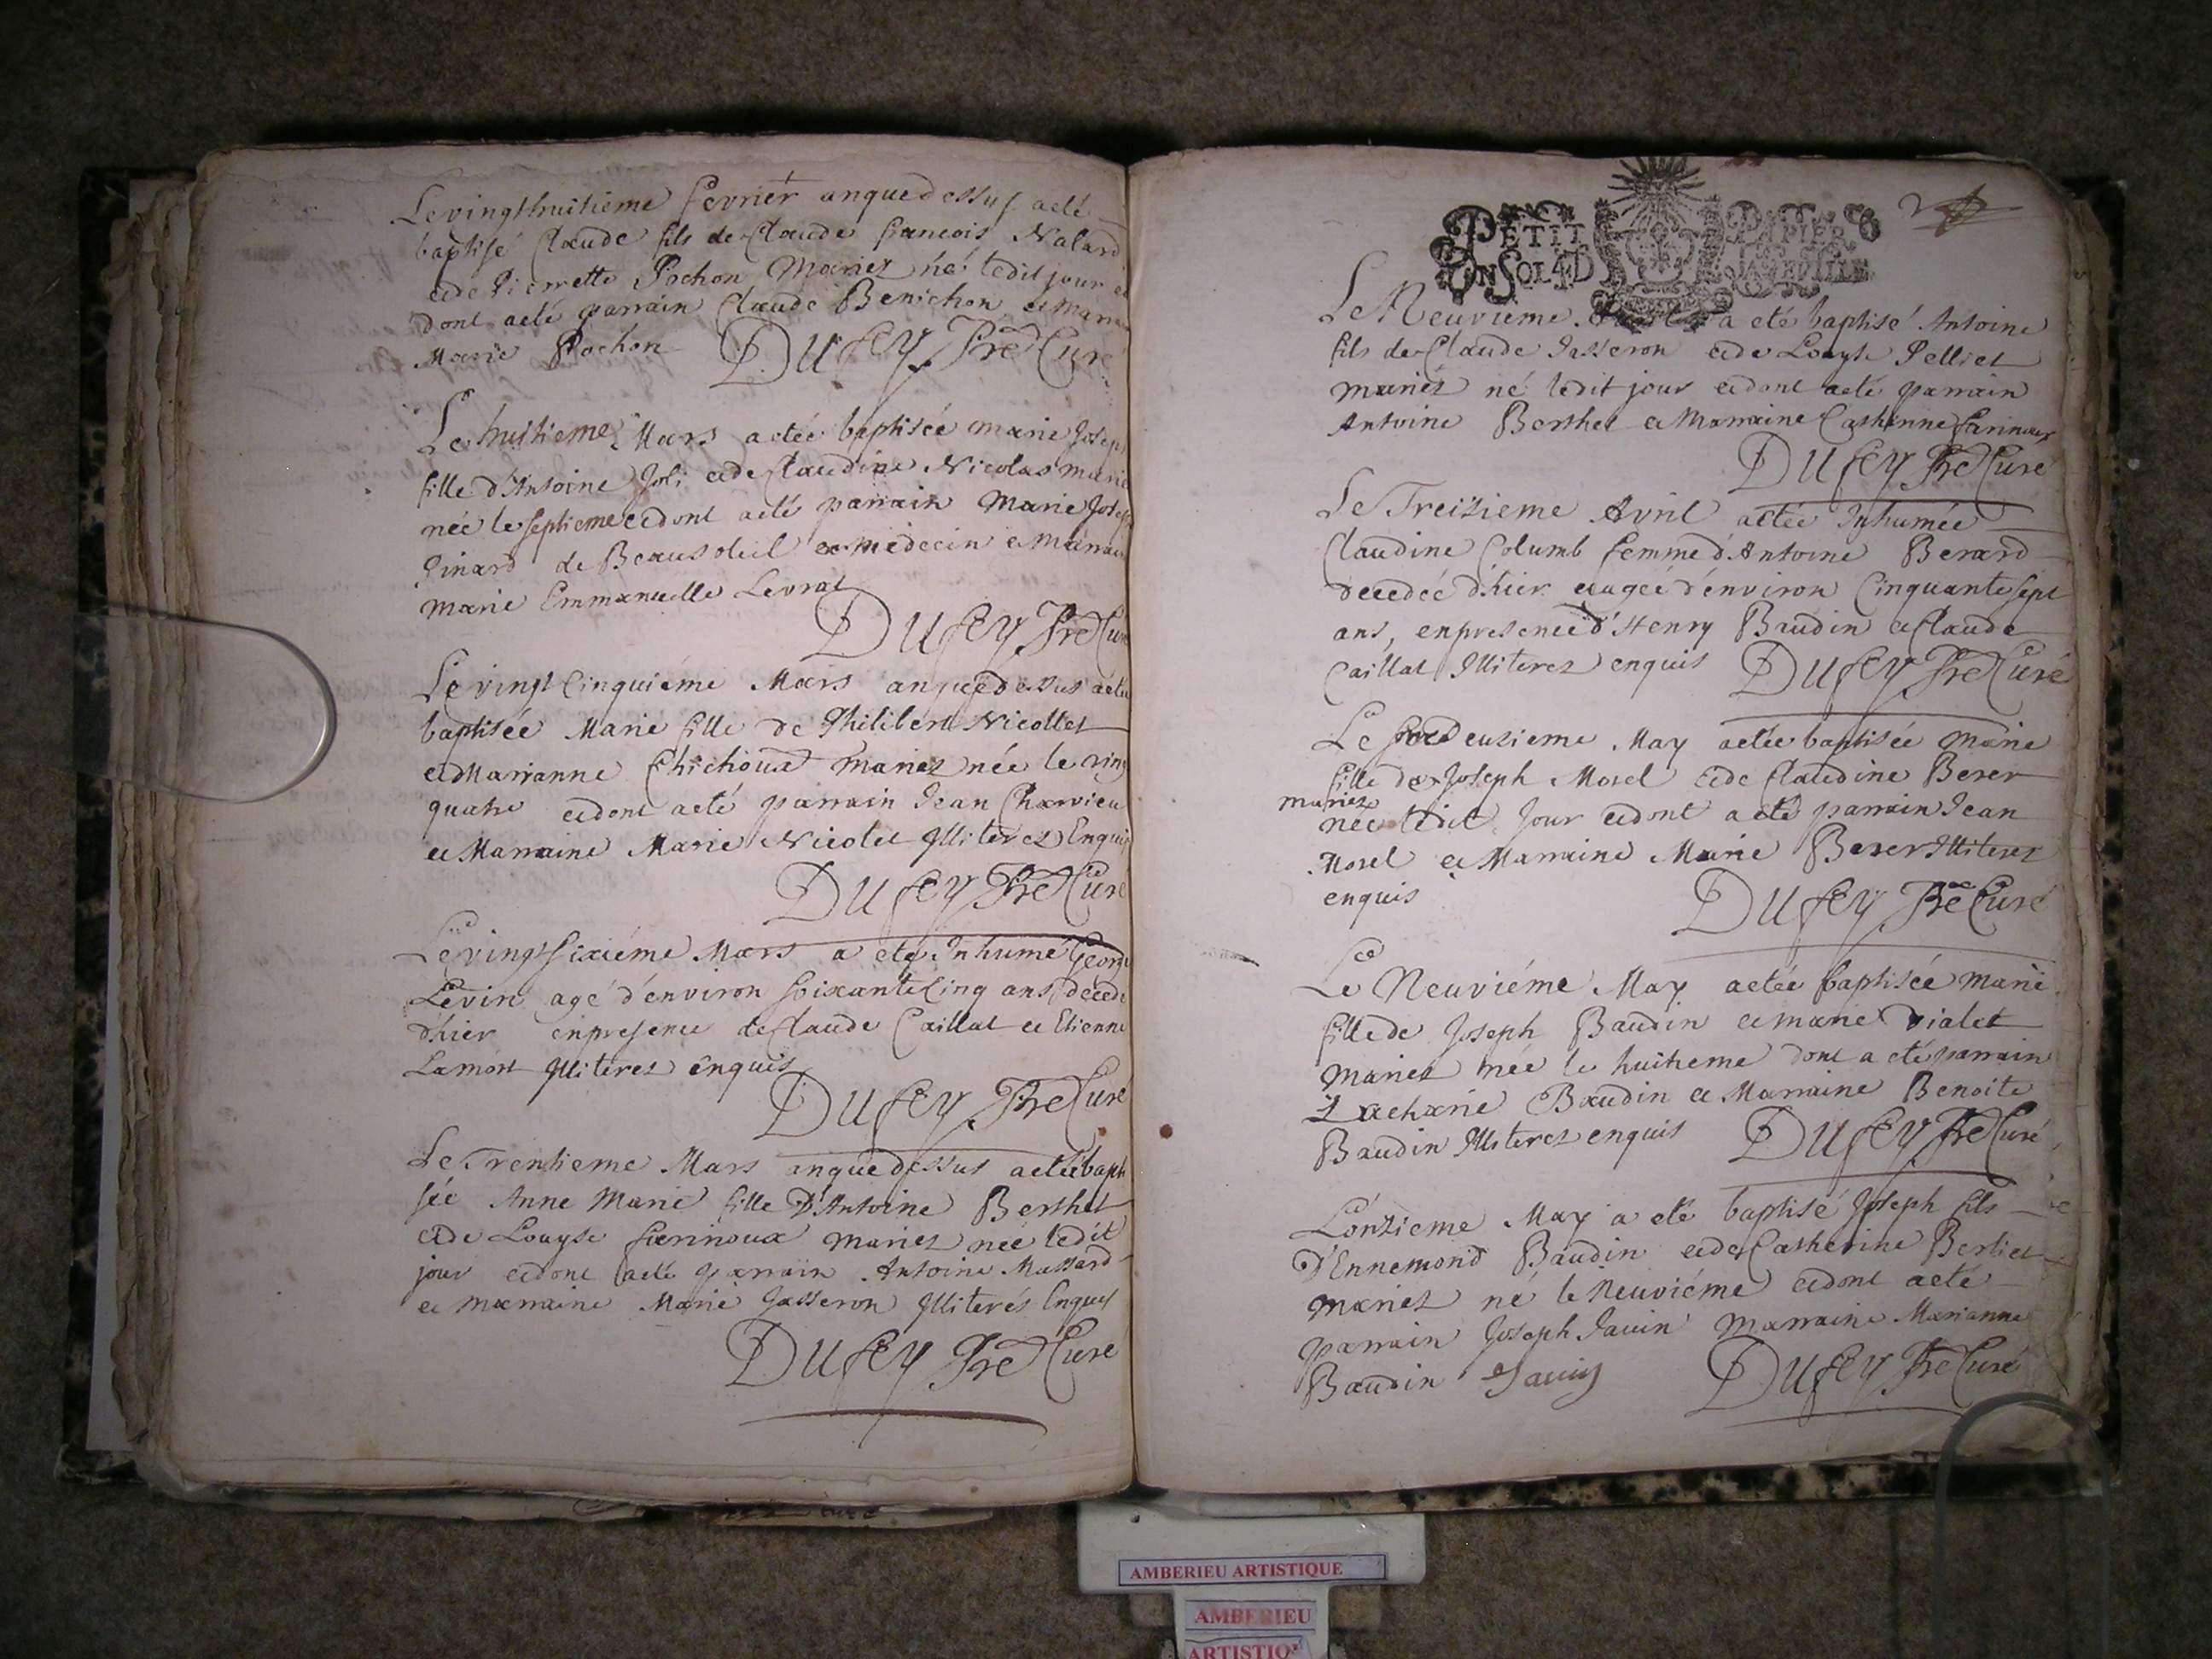 Le vingthuitieme fevrier anquedessus aété
baptisé Claude fils de Claude francois Nalard
et de Pierrette Pochon Mariez né ledit jour et
dont aété parrain Claude Benichon et Marr
Marie Pochon DUfEY Pre Curé
Le huitieme Mars aetée baptisée marie Josep
fille d'Antoine Joli et de Claudine Nicolas marie
née le septieme et dont aété parrain Marie Josep
Pinard de Beausoleil médecin et Marrai
Marie Emmanuelle Levrat
DUfEY Pre Curé
Le vingt Cinquiéme Mars anquedessus aéte
baptisée Marie fille de Philibert Nicollet
et Marianne Chichoux mariez née le ving
quatre et dont aété parrain Jean Charvieu
et Marraine Marie Nicolet Illiterez Enquis
DUfEY Pre Curé
Le vingt Sixiéme Mars a eté Inhumé George
Levin agé d'environ Soixante Cinq ans decedé
d'hier enpresence de Claude Caillat et Etienne
Lamort Illiterez enquis
DUfEY Pre Curé
Le Trentieme Mars anquedessus aetée bapti
sée Anne Marie fille D'Antoine Berthet
et de Louyse ferinoux mariez née ledit
jour et dont aété parrain Antoine Massard
et marraine Marie Jasseron Illiterés Enquis
DUfEY Pre Curé
PETIT PAPIER
UN SOL 4D LA FEUILLE
Le Neuvieme a eté baptisé Antoine
fils de Claude Jasseron et de Louyse Pelliet
mariéz né ledit jour et dont aété parrain
Antoine Berthet et Marraine Catherine farinoux
DUfEY Pre Curé
Le Treizieme Avril aetée Inhumée
Claudine Columb femme d'Antoine Berard
decedée d'hier et agée d'environ Cinquante sept
ans, enpresence d'Henry Baudin et Claude
Caillat Illiterez enquis DUfEY Pre Curé
Le deuzieme May aetée baptisée Marie
fille de Joseph Morel et de Claudine Beser
mariez
née ledit Jour et dont a eté parrain Jean
Morel et Marraine Marie Beser Illiterez
enquis DUfEY Pre Curé
Le Neuviéme May aetée baptisée Marie
fille de Joseph Baudin et marie Vialet
Mariez née le huitieme dont a eté parrain
Zacharie Baudin et Marraine Benoite
Baudin Illiterez enquis DUfEY Pre Curé
L'onzieme May a eté baptisé Joseph fils
D'Ennemond Baudin et de Catherine Berliet
Mariez né le Neuviéme et dont aeté
parrain Joseph Javin Marraine Marianne
Baudin Javin DUfEY Pre Curé
AMBERIEU ARTISTIQUE
AMBERIEU
ARTISTIQ